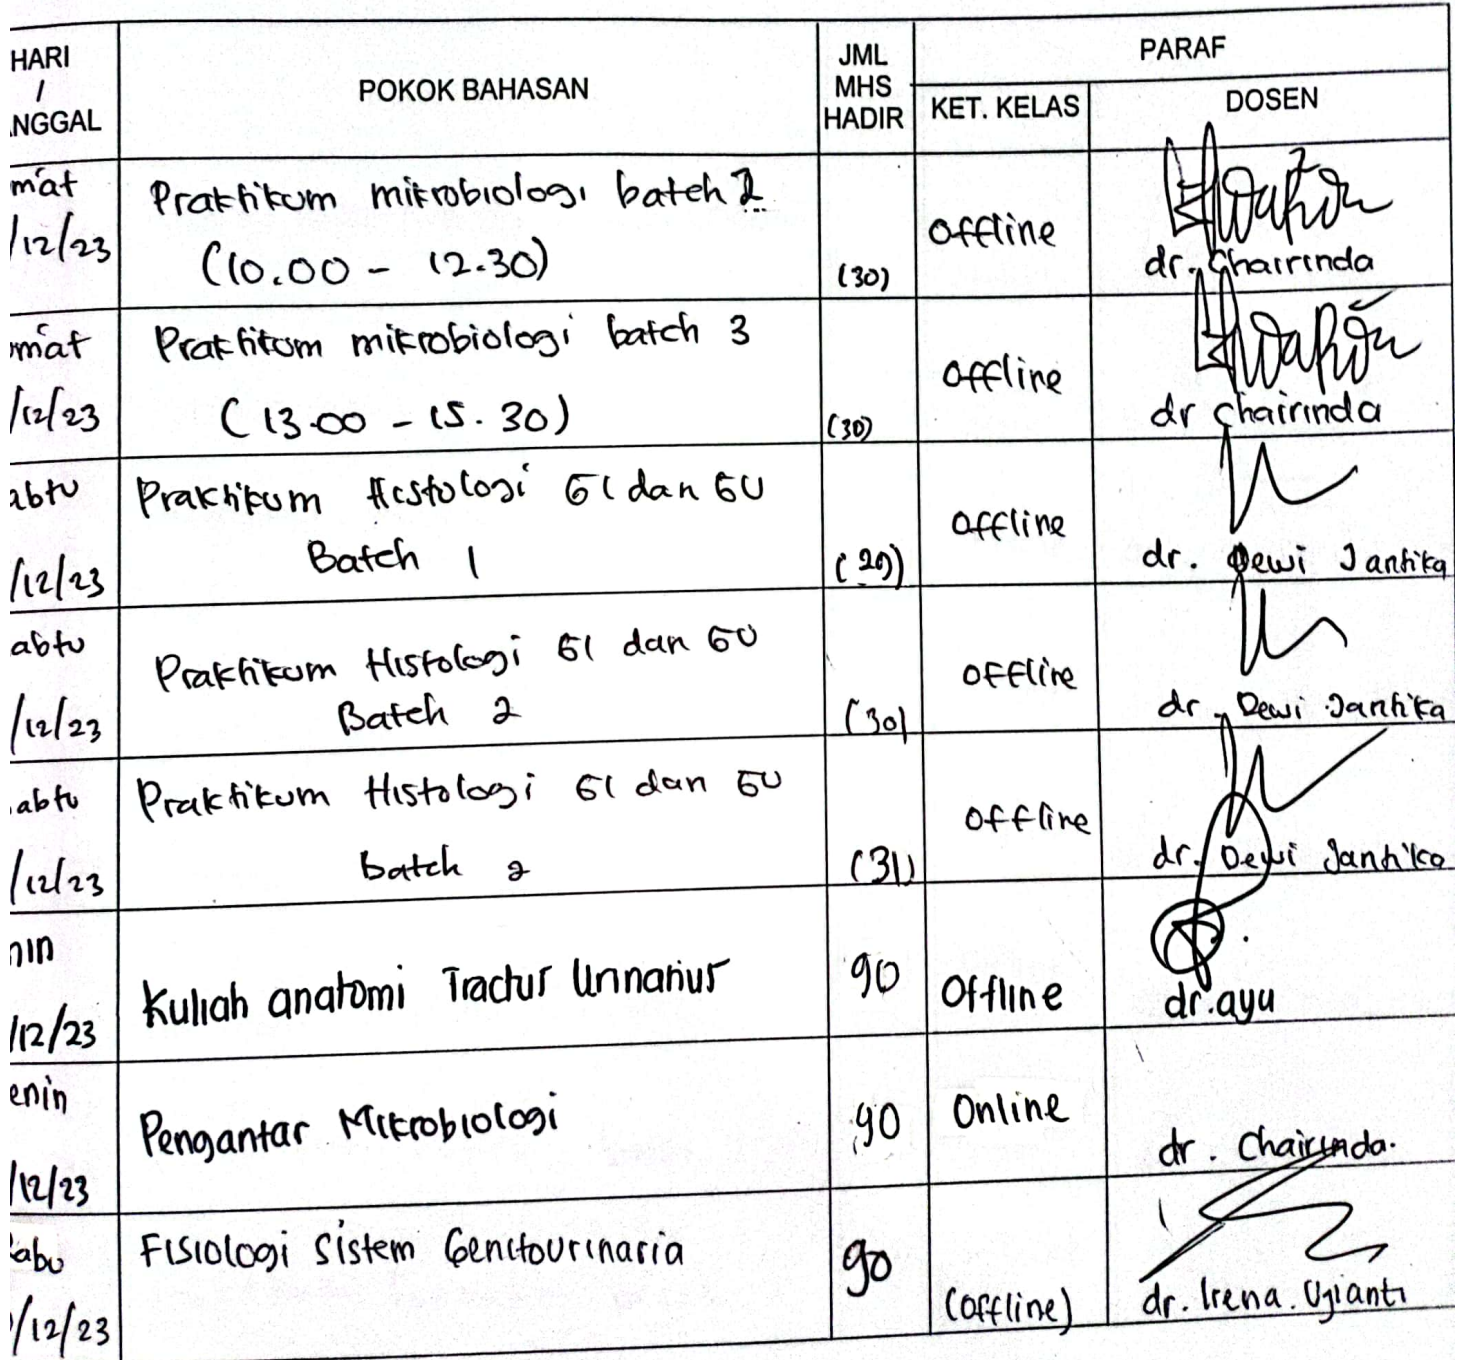 HARI
/
NGGAL
POKOK BAHASAN
JML
MHS
HADIR
PARAF
KET. KELAS
DOSEN
mat
/12/23
Praktikum mikrobiologi batch 2
(10.00 - 12.30)
(30)
Offline
dr. Chairinda
mat
/12/23
Praktikum mikrobiologi batch 3
(13.00 - 15.30)
(30)
Offline
dr Chairinda
abtu
/12/23
Praktikum Histologi G1 dan GU
Batch 1
(29)
Offline
dr. Dewi Jantika
abtu
/12/23
Praktikum Histologi G1 dan GU
Batch 2
(30)
Offline
dr. Dewi Jantika
abtu
/12/23
Praktikum Histologi G1 dan GU
batch 2
(31)
Offline
dr. Dewi Jantika
nin
/12/23
Kuliah anatomi Tractur Urinariur
90
Offline
dr.ayu
enin
/12/23
Pengantar Mikrobiologi
90
Online
dr. Chairinda.
abu
/12/23
Fisiologi Sistem Genitourinaria
90
(offline)
dr. Irena. Ujianti